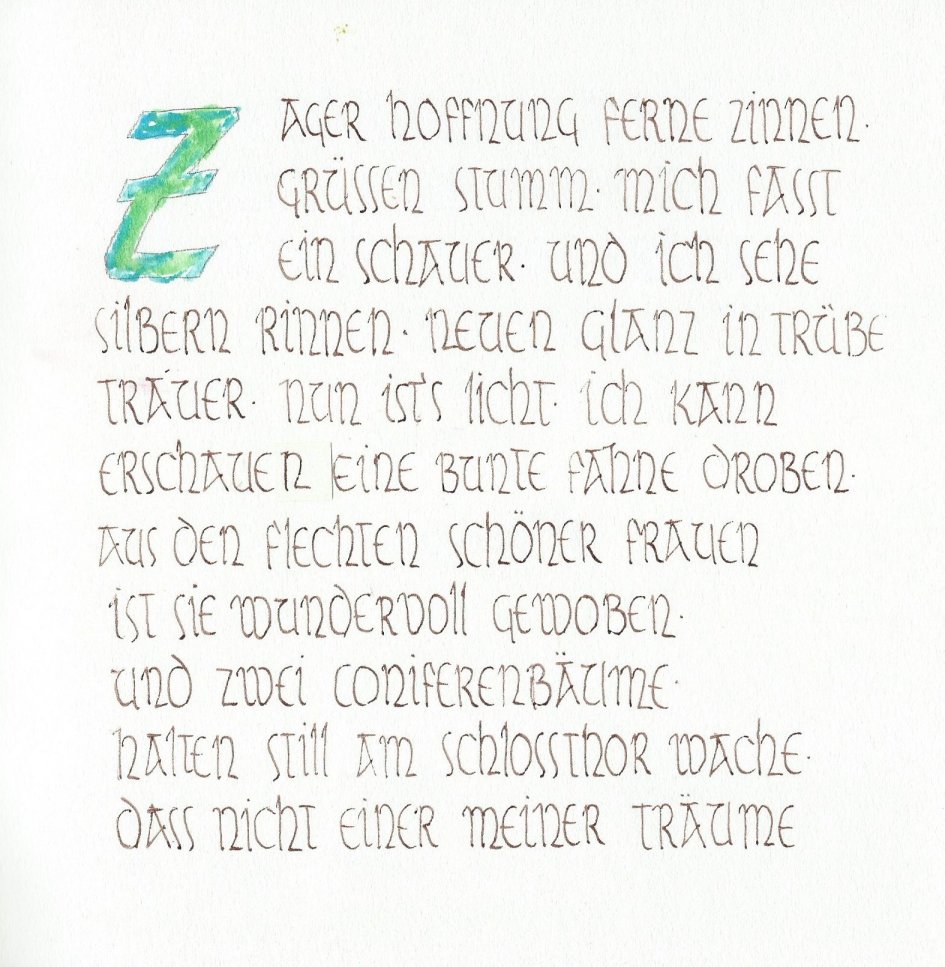 ZAGER HOFFNUNG FERNE ZINNEN·
GRÜSSEN STUMM· MICH FASST
EIN SCHAUER· UND ICH SEHE
SILBERN RINNEN· NEUEN GLANZ IN TRÜBE
TRAUER· NUN IST'S LICHT· ICH KANN
ERSCHAUEN EINE BUNTE FAHNE DROBEN·
AUS DEN FLECHTEN SCHÖNER FRAUEN
IST SIE WUNDERVOLL GEWOBEN·
UND ZWEI CONIFERENBÄUME·
HALTEN STILL AM SCHLOSSTHOR WACHE·
DASS NICHT EINER MEINER TRÄUME